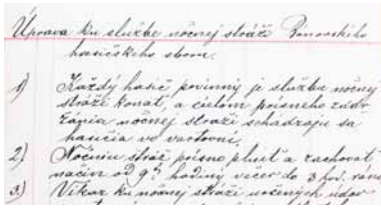 Úprava ku službe nočnej stráži Pánovského
hasičského sboru.
1) Každý hasič povinný je službu nočnej
stráži konať, a cielom prisneho zdôr
žania nočnej straži schádzajú sa
hasičia vo vartovni,
2) Nočnú stráž prisno plniť a zachovať,
začín od 9th hodiny večer do 3 hod. rano
3) Výkaz ku nočnej stráži určených údov